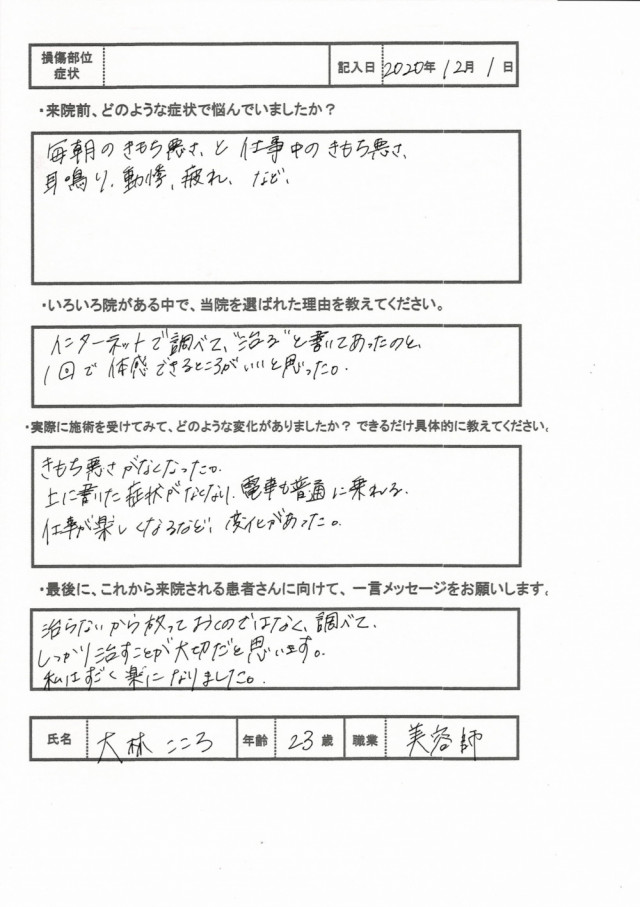 損傷部位
症状
記入日 2020年 12月 1日
・来院前、どのような症状で悩んでいましたか？
毎朝のきもち悪さ、と 仕事中のきもち悪さ、
耳鳴り、動悸、疲れ、など、
・いろいろ院がある中で、当院を選ばれた理由を教えてください。
インターネットで調べて、"治る"と書いてあったのと、
1回で体感できるところがいいと思った。
・実際に施術を受けてみて、どのような変化がありましたか？ できるだけ具体的に教えてください。
きもち悪さがなくなった。
上に書いた症状がなくなり、電車も普通に乗れる。
仕事が楽しくなるなど、変化があった。
・最後に、これから来院される患者さんに向けて、一言メッセージをお願いします。
治らないから放っておくのではなく、調べて、
しっかり治すことが大切だと思います。
私はすごく楽になりました。
氏名 大林 こころ 年齢 23歳 職業 美容師